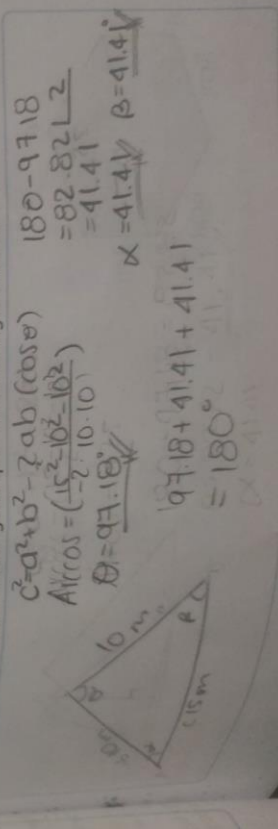 c²=a²+b²-2ab(cosθ)
Arccos=(15²-10²-10²
-2·10·10)
θ=97.18°
180-97.18
=82.82 2
=41.41
α=41.41 β=41.41°
97.18+41.41+41.41
=180°
10 m
θ
β
15m